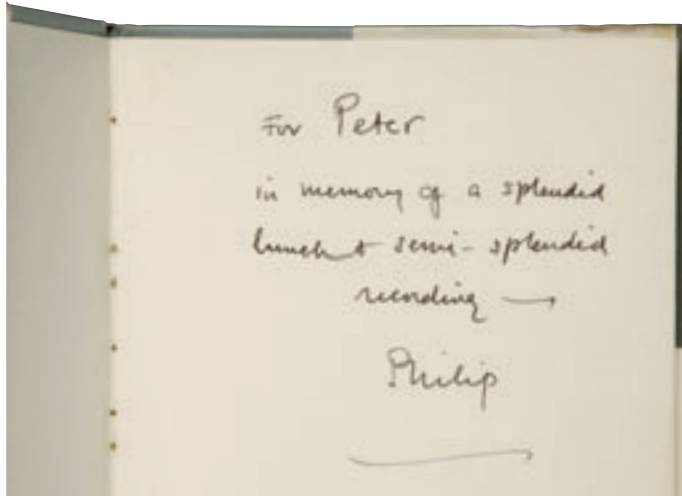 For Peter
in memory of a splendid
lunch & semi-splendid
recording —
Philip